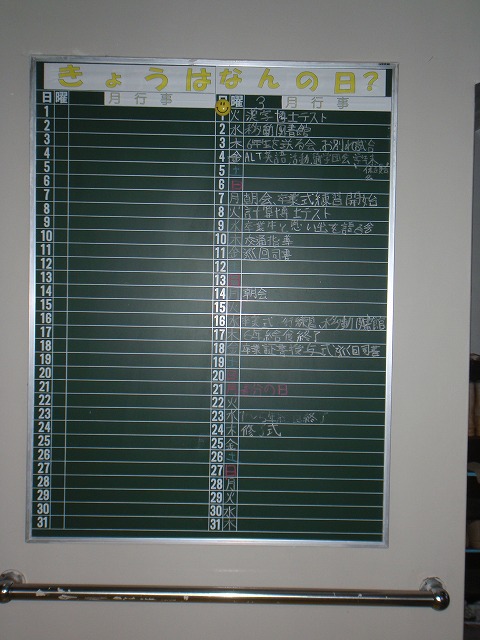 きょうはなんの日?
日 曜 月行事 日 曜 3 月行事
1 1 火 漢字博士テスト
2 2 水 移動図書館
3 3 木 6年生を送る会 お別れ試合
4 4 金 ALT英語活動
5 5 土
6 6 日
7 7 月 朝会 卒業式練習開始
8 8 火 計算博士テスト
9 9 水 卒業生と思い出を語る会
10 10 木 交通指導
11 11 金 巡回司書
12 12
13 13 日
14 14 月 朝会
15 15 火
16 16 水 卒業式 練習 移動図書館
17 17 木 6年給食終了
18 18 金 卒業証書授与式 巡回司書
19 19 土
20 20 日
21 21 月 春分の日
22 22 火
23 23 水
24 24 木 修了式
25 25 金
26 26 土
27 27 日
28 28 月
29 29 火
30 30 水
31 31 木